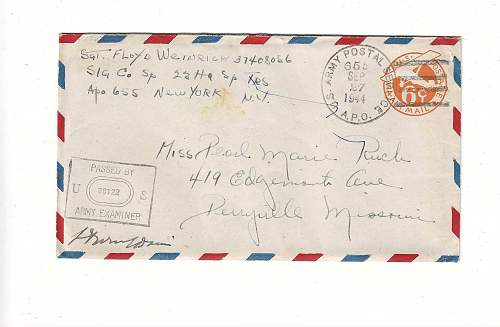 Sgt. Floyd Weinrich 37408086
Sig Co Sp 2d Hq Sp
Apo 655 New York N.Y.
U.S. ARMY POSTAL
655
SEP
27
1944
A.P.O.
6¢
AIR MAIL
Miss Pearl Marie
419 Edgemont Ave
Perryville Missouri
PASSED BY
U S
ARMY EXAMINER